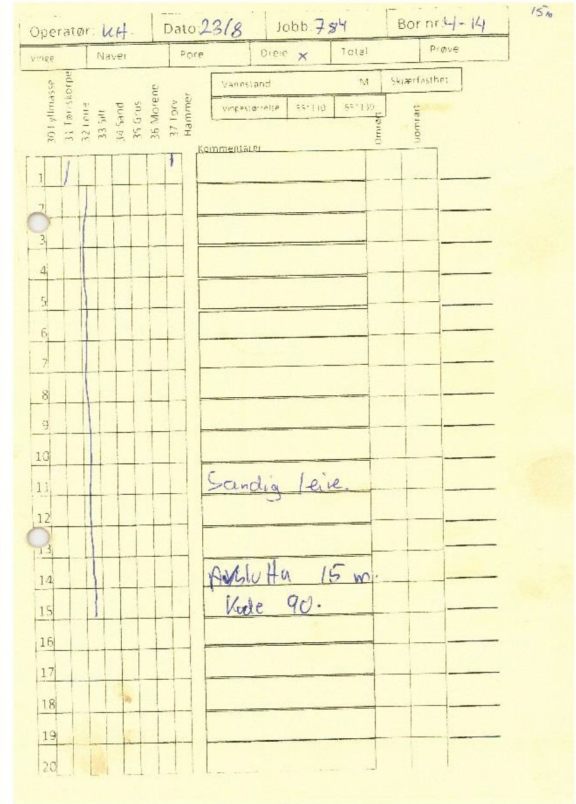 15 m
Operatør: KH. Dato 23/8 Jobb: 784 Bor nr: 4-14
Vinge Naver Pore Dreie x Total Prøve
30 Fyllmasse
31 Tørrskorpe
32 Leire
33 Silt
34 Sand
35 Grus
36 Morene
37 Torv
Hammer
Vannstand M Skjærfasthet
Vingestørrelse 55*110 65*130
Omrørt
uomrørt
Kommentarer
1
2
3
4
5
6
7
8
9
10
11 Sandig leire.
12
13
14 Avslutta 15 m.
15 Kode 90.
16
17
18
19
20